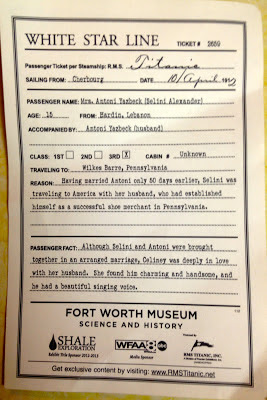 WHITE STAR LINE TICKET # 2659
Passenger Ticket per Steamship: R.M.S. Titanic
SAILING FROM: Cherbourg DATE 10/April 1912
PASSENGER NAME: Mrs. Antoni Yazbeck (Selini Alexander)
AGE: 15 FROM: Hardin, Lebanon
ACCOMPANIED BY: Antoni Yazbeck (husband)
CLASS: 1ST 2ND 3RD X CABIN # Unknown
TRAVELING TO: Wilkes Barre, Pennsylvania
REASON: Having married Antoni only 50 days earlier, Selini was
traveling to America with her husband, who had established
himself as a successful shoe merchant in Pennsylvania.
PASSENGER FACT: Although Selini and Antoni were brought
together in an arranged marriage, Celiney was deeply in love
with her husband. She found him charming and handsome, and
he had a beautiful singing voice.
FORT WORTH MUSEUM
SCIENCE AND HISTORY
SHALE
EXPLORATION
Exhibit Title Sponsor 2012-2013
WFAA 8 abc
Media Sponsor
Presented by
RMS TITANIC, INC.
Get exclusive content by visiting: www.RMSTitanic.net